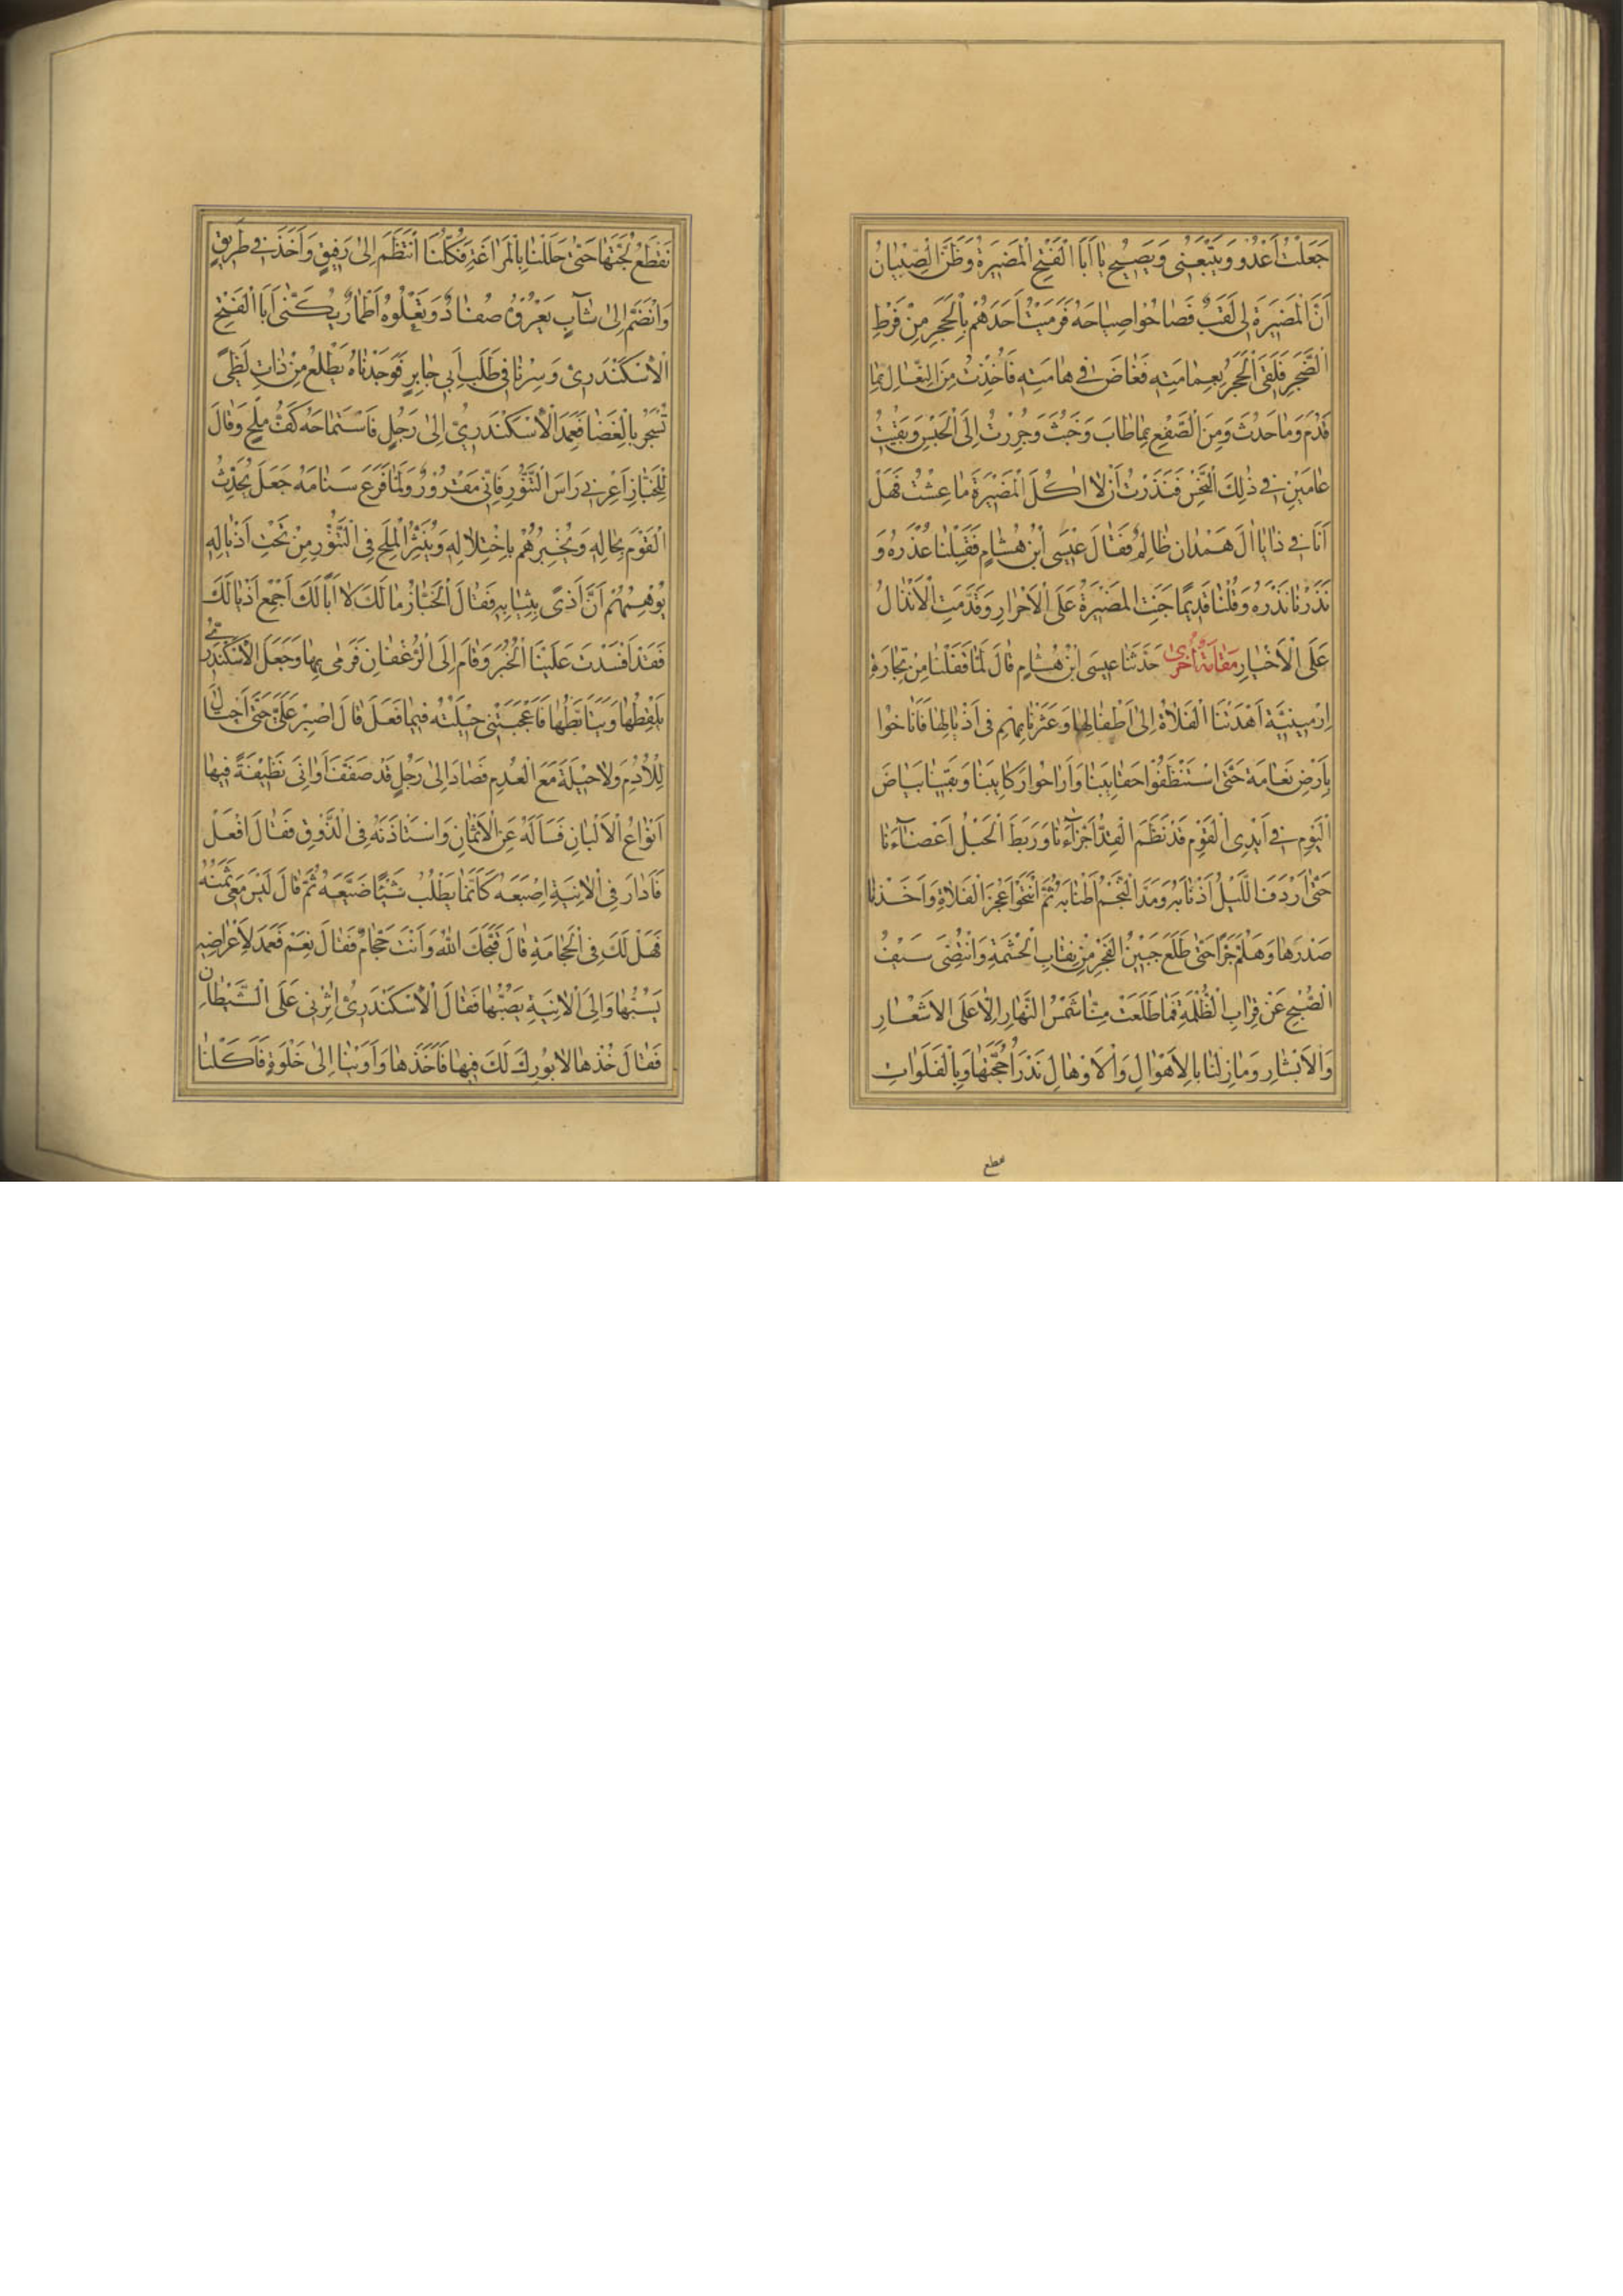 جَعَلْتُ أَعْدُو وَيَتْبَعُنِي وَيَصِيحُ يَا أَبَا الْفَتْحِ الْمَضِيرَةُ وَظَنَّ الصِّبْيَانُ
أَنَّ الْمَضِيرَةَ لِي لَقَبٌ فَصَاحُوا صِيَاحَهُ فَرَمَيْتُ أَحَدَهُمْ بِالْحَجَرِ مِنْ فَرْطِ
الضَّجَرِ فَلَقِيَ الْحَجَرُ بِعِمَامَتِهِ فَغَاصَ فِي هَامَتِهِ فَأُخِذْتُ مِنَ النِّعَالِ بِمَا
قَدُمَ وَمَا حَدُثَ وَمِنَ الصَّفْعِ بِمَا طَابَ وَخَبُثَ وَجُرِرْتُ إِلَى الْحَبْسِ وَبَقِيتُ
عَامَيْنِ فِي ذَلِكَ النَّحْسِ فَنَذَرْتُ أَنْ لَا آكُلَ الْمَضِيرَةَ مَا عِشْتُ فَهَلْ
أَنَا فِي ذَا يَا اٰلَ هَمْدَانَ ظَالِمٌ فَقَالَ عِيسَى ابْنُ هِشَامٍ فَقَبِلْنَا عُذْرَهُ وَ
نَذَرْنَا نَذْرَهُ وَقُلْنَا قَدِيمًا جَنَتِ الْمَضِيرَةُ عَلَى الْأَحْرَارِ وَقَدَّمَتِ الْأَنْذَالُ
عَلَى الْأَخْيَارِ مَقَامَةٌ أُخْرَى حَدَّثَنَا عِيسَى ابْنُ هِشَامٍ قَالَ لَمَّا قَفَلْنَا مِنْ تِجَارَةِ
اِرْمِينِيَّةَ أَهْدَتْنَا الْفَلَاةُ إِلَى أَطْفَالِهَا وَعَثَرْنَا بِهِمْ فِي أَذْيَالِهَا فَأَنَاخُوا
بِأَرْضِ نَعَامَةٍ حَتَّى اسْتَنْظَفُوا حَقَايِبَنَا وَأَرَاحُوا رَكَايِبَنَا وَبَقِينَا بَيَاضَ
الْيَوْمِ فِي أَيْدِي الْقَوْمِ قَدْ نَظَمَ الْقِدُّ أَجْزَآءَنَا وَرَبَطَ الْحَبْلُ أَعْضَآءَنَا
حَتَّى أَرْدَفَ اللَّيْلُ أَذْنَابَهُ وَمَدَّ النَّجْمُ أَطْنَابَهُ ثُمَّ انْتَحَوْا عَجُزَ الْفَلَاةِ وَأَخَذْنَا
صَدْرَهَا وَهَلُمَّ جَرًّا حَتَّى طَلَعَ جَبِينُ الْفَجْرِ مِنْ نِقَابِ الْحِشْمَةِ وَانْتُضِيَ سَيْفُ
الصُّبْحِ عَنْ قِرَابِ الظُّلْمَةِ فَمَا طَلَعَتْ مِنَّا شَمْسُ النَّهَارِ إِلَّا عَلَى الْأَشْعَارِ
وَالْأَبْشَارِ وَمَا زِلْنَا بِالْأَهْوَالِ وَالْأَوْهَالِ نَدْرَأُ حُجُبَهَا وَبِالْفَلَوَاتِ
نَقْطَعُ نُجُبَهَا حَتَّى حَلَلْنَا بِالْمَرَاغَةِ فَكُلُّنَا انْتَظَمَ إِلَى رَفِيقٍ وَأَخَذَ فِي طَرِيقٍ
وَانْضَمَّ إِلَى شَابٍّ يَعْرُوهُ صُفَارٌ وَتَعْلُوهُ أَطْمَارٌ يُكَنَّى أَبَا الْفَتْحِ
الْأَسْكَنْدَرِيَّ وَسِرْنَا فِي طَلَبِ أَبِي جَابِرٍ فَوَجَدْنَاهُ يَطْلُعُ مِنْ ذَاتِ لَظًى
تُسْجَرُ بِالْغَضَا فَعَمَدَ الْأَسْكَنْدَرِيُّ إِلَى رَجُلٍ فَاسْتَمَاحَهُ كَفَّ مِلْحٍ وَقَالَ
لِلْخَبَّازِ أَعِرْنِي رَأْسَ التَّنُّورِ فَإِنِّي مَقْرُورٌ وَلَمَّا فَرَعَ سَنَامَهُ جَعَلَ يُحَدِّثُ
الْقَوْمَ بِحَالِهِ وَيُخْبِرُهُمْ بِاخْتِلَالِهِ وَيَنْثُرُ الْمِلْحَ فِي التَّنُّورِ مِنْ تَحْتِ أَذْيَالِهِ
يُوهِمُهُمْ أَنَّ أَذًى بِثِيَابِهِ فَقَالَ الْخَبَّازُ مَا لَكَ لَا أَبَا لَكَ اَجْمِعْ أَذْيَالَكَ
فَقَدْ أَفْسَدْتَ عَلَيْنَا الْخُبْزَ وَقَامَ إِلَى الرُّغْفَانِ فَرَمَى بِهَا وَجَعَلَ الْأَسْكَنْدَرِيُّ
يَلْقِطُهَا وَيَتَأَبَّطُهَا فَأَعْجَبَتْنِي حِيلَتُهُ فِيمَا فَعَلَ قَالَ اصْبِرْ عَلَيَّ حَتَّى أَحْتَالَ
لِلْأُدْمِ وَلَا حِيلَةَ مَعَ الْعُدْمِ فَصَارَ إِلَى رَجُلٍ قَدْ صَفَّفَ أَوَانِيَ نَظِيفَةً فِيهَا
أَنْوَاعُ الْأَلْبَانِ فَسَأَلَهُ عَنِ الْأَثْمَانِ وَاسْتَأْذَنَهُ فِي الذَّوْقِ فَقَالَ افْعَلْ
فَأَدَارَ فِي الْآنِيَةِ إِصْبَعَهُ كَأَنَّمَا يَطْلُبُ شَيْئًا ضَيَّعَهُ ثُمَّ قَالَ لَيْسَ مَعِي ثَمَنُهُ
فَهَلْ لَكَ فِي الْحِجَامَةِ قَالَ قَبَّحَكَ اللهُ وَأَنْتَ حَجَّامٌ فَقَالَ نَعَمْ فَعَمَدَ لِأَعْرَاضِهِ
يَسُبُّهَا وَإِلَى الْآنِيَةِ يَصُبُّهَا فَقَالَ الْأَسْكَنْدَرِيُّ اٰثِرْنِي عَلَى الشَّيْطَانِ
فَقَالَ خُذْهَا لَا بُورِكَ لَكَ فِيهَا فَأَخَذَهَا وَأَوَيْنَا إِلَى خَلْوَةٍ فَأَكَلْنَا